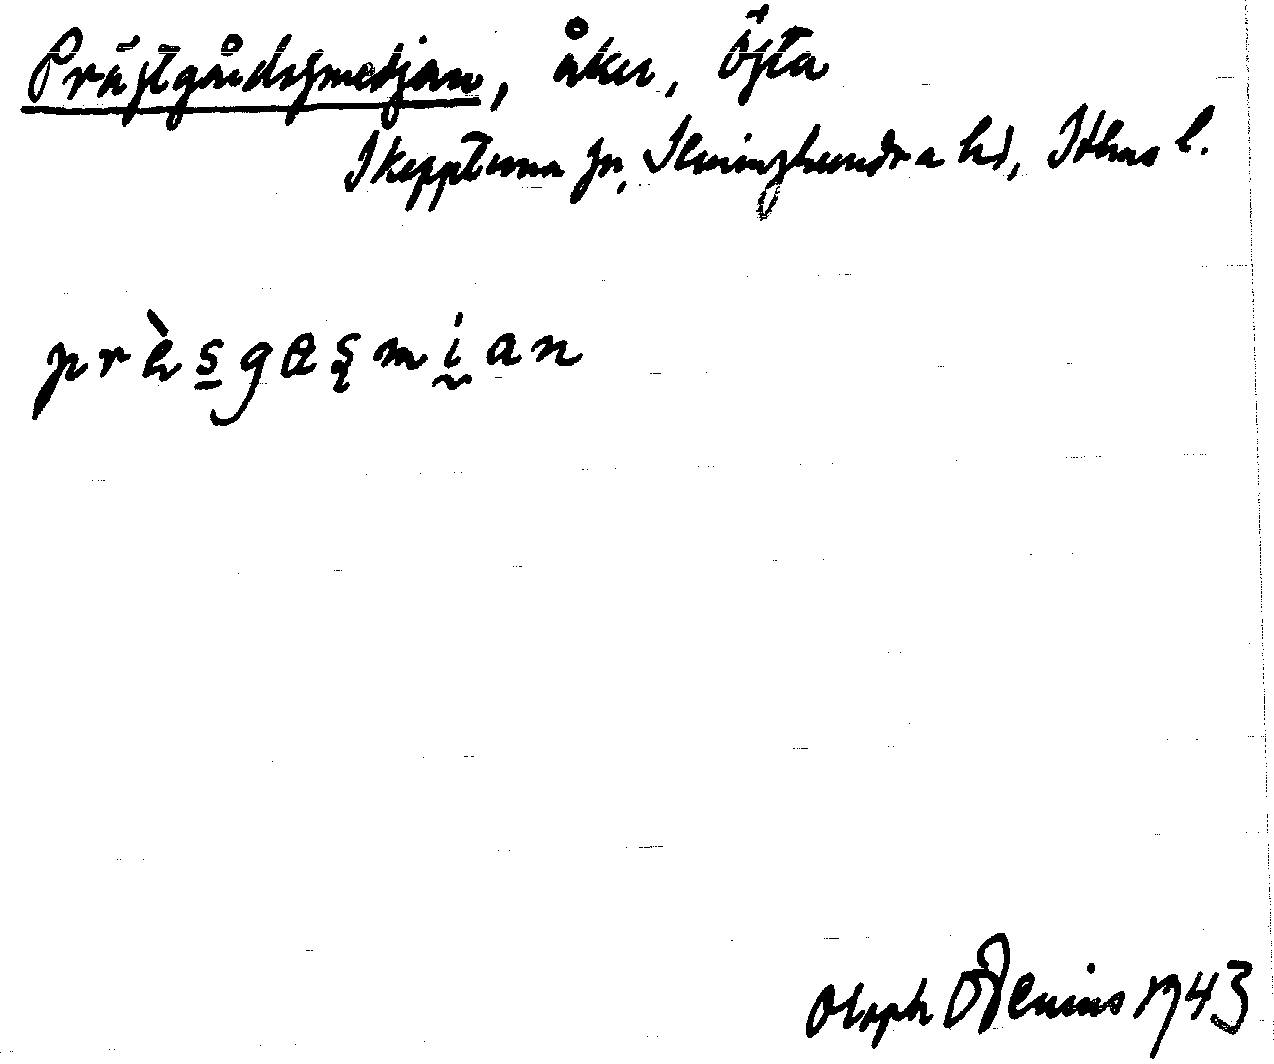 Prästgårdssmedjan, åker, Östa
Skepptuna sn, Seminghundra hd, Sthms l.
prὲsgaşmi̯an
Oloph Odenius 1943